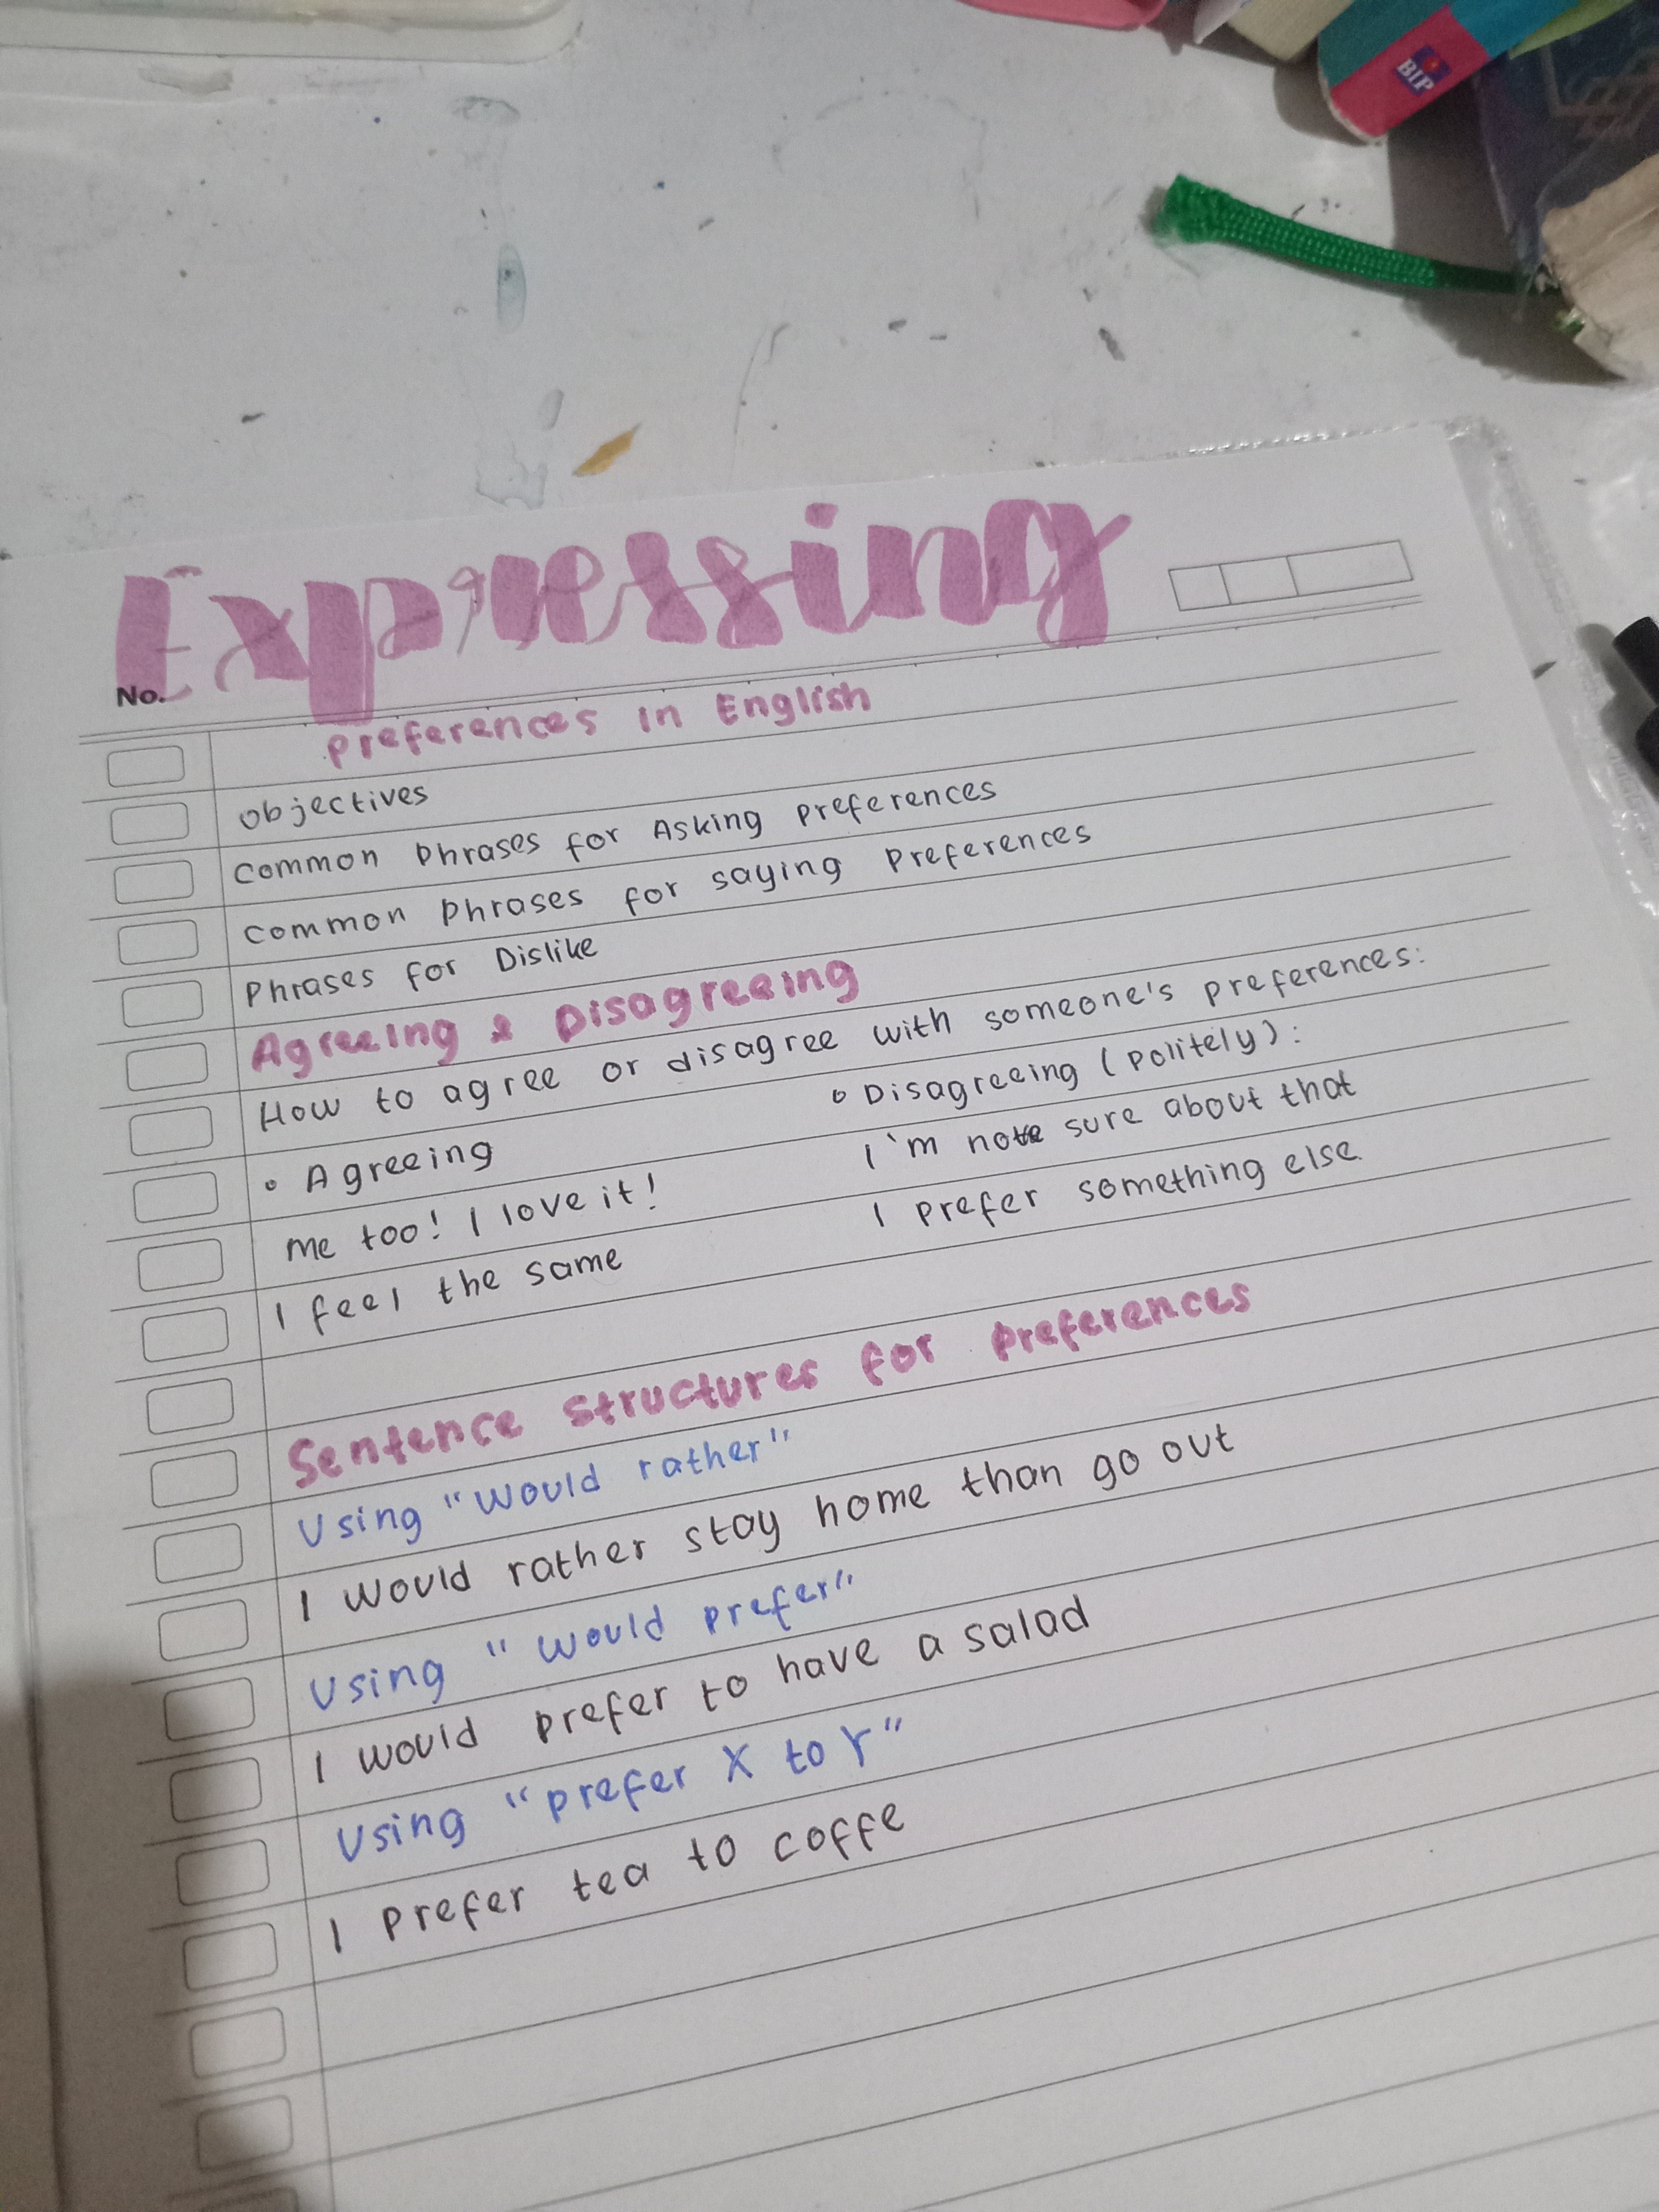 BIP
Expressing
No.
Preferences in English
objectives
common phrases for Asking preferences
common phrases for saying preferences
Phrases for Dislike
Agreeing & Disagreeing
How to agree or disagree with someone's preferences:
• Agreeing
• Disagreeing (politely):
me too! I love it!
I'm not sure about that
I feel the same
I prefer something else
Sentence structures for preferences
Using "Would rather"
I would rather stay home than go out
Using "Would prefer"
I would prefer to have a salad
Using "prefer X to Y"
I prefer tea to coffe